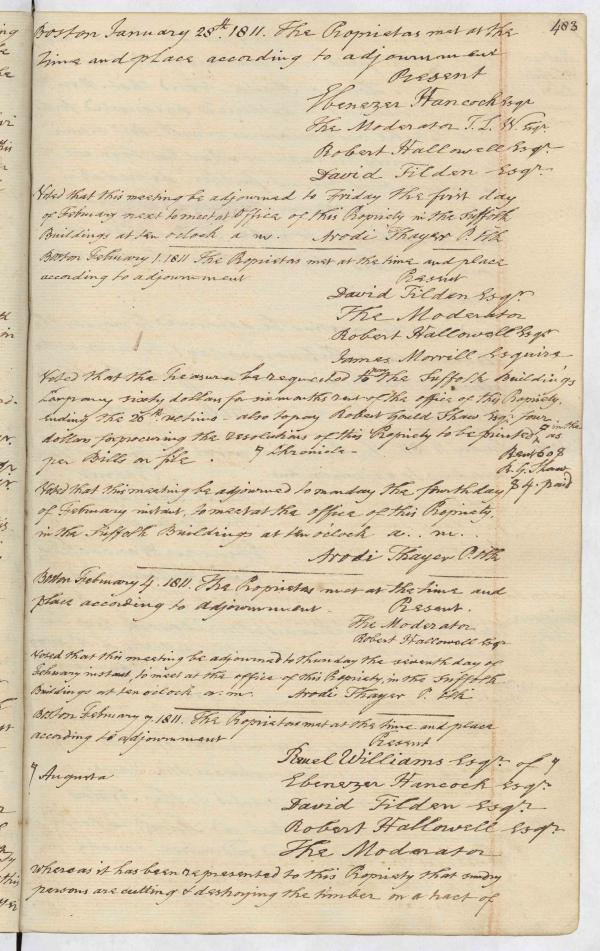 483
Boston January 28th. 1811. The Proprietors met at the
time and place according to adjournment
Present
Ebenezer Hancock Esqr
The Moderator T. L. W. Esqr
Robert Hallowell Esqr.
David Tilden Esqr.
Voted that this meeting be adjourned to Friday the first day
of February next to meet at Office of this Propriety in the Suffolk
Buildings at ten o'clock a m. Arodi Thayer P. Clk
Boston February 1. 1811 The Proprietors met at the time and place
according to adjournment Present
David Tilden Esqr.
The Moderator
Robert Hallowell Esqr
James Morrill Esquire
Voted that the Treasurer be requested to pay the Suffolk Buildings
Company sixty dollars for six months rent of the office of this Propriety,
ending the 26th ultimo - also to pay Robert Gould Shaw Esqr. four
dollars for procuring the resolutions of this Propriety to be printed in the as
per Bills on file. Chronicle - Rent 60 $
R. G. Shaw
$ 4. paid
Voted that this meeting be adjourned to monday the fourth day
of February instant, to meet at the office of this Propriety
in the Suffolk Buildings at ten o'clock a. m.
Arodi Thayer P. Clk
Boston February 4. 1811. The Proprietors met at the time and
place according to adjournment - Present.
The Moderator
Robert Hallowell Esqr
Voted that this meeting be adjourned to thursday the seventh day of
February instant to meet at the office of this Propriety, in the Suffolk
Buildings at ten o'clock a. m. Arodi Thayer P. Clk
Boston February 7. 1811. The Proprietors met at the time and place
according to adjournment Present
Reuel Williams Esqr. of
Augusta
Ebenezer Hancock Esqr.
David Tilden Esqr.
Robert Hallowell Esqr.
The Moderator
Whereas it has been represented to this Propriety that sundry
persons are cutting & destroying the timber on a tract of